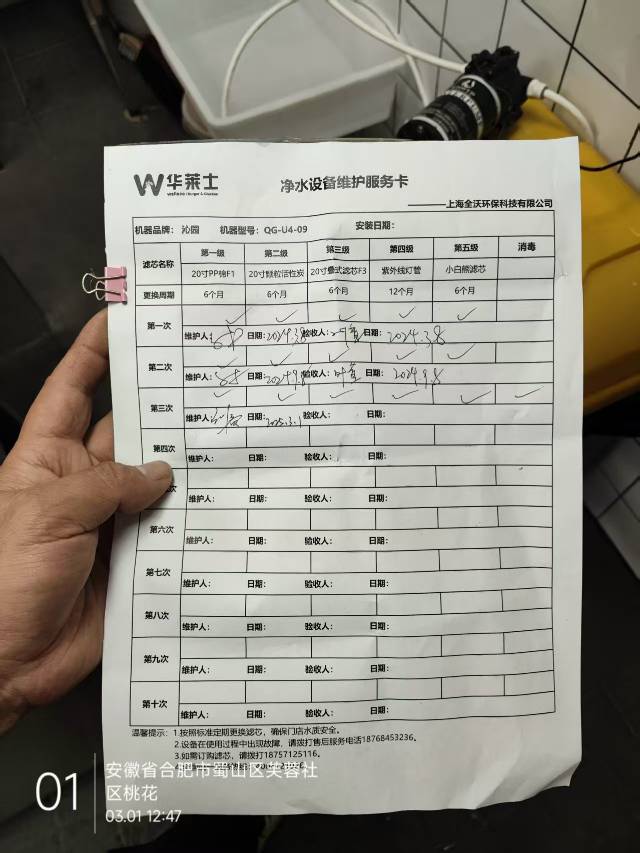 华莱士
净水设备维护服务卡
——上海全沃环保科技有限公司
机器品牌: 沁园 机器型号: QG-U4-09 安装日期:
滤芯名称 第一级 第二级 第三级 第四级 第五级 消毒
20寸PP棉F1 20寸颗粒活性炭 20寸叠式滤芯F3 紫外线灯管 小白熊滤芯
更换周期 6个月 6个月 6个月 12个月 6个月
第一次 ✓ ✓ ✓ ✓ ✓
维护人: 日期: 2024.3.8 验收人: 日期: 2024.3.8
第二次 ✓ ✓ ✓ ✓ ✓
维护人: 日期: 2024.9.8 验收人: 日期: 2024.9.8
第三次 ✓ ✓ ✓ ✓ ✓ ✓
维护人: 日期: 2025.3.1 验收人: 日期:
第四次
维护人: 日期: 验收人: 日期:
次
维护人: 日期: 验收人: 日期:
第六次
维护人: 日期: 验收人: 日期:
第七次
维护人: 日期: 验收人: 日期:
第八次
维护人: 日期: 验收人: 日期:
第九次
维护人: 日期: 验收人: 日期:
第十次
维护人: 日期: 验收人: 日期:
温馨提示: 1.按照标准定期更换滤芯，确保门店水质安全。
2.设备在使用过程中出现故障，请拨打售后服务电话18768453236。
3.如需订购滤芯，请拨打18757125116。
01
安徽省合肥市蜀山区芙蓉社
区桃花
03.01 12:47